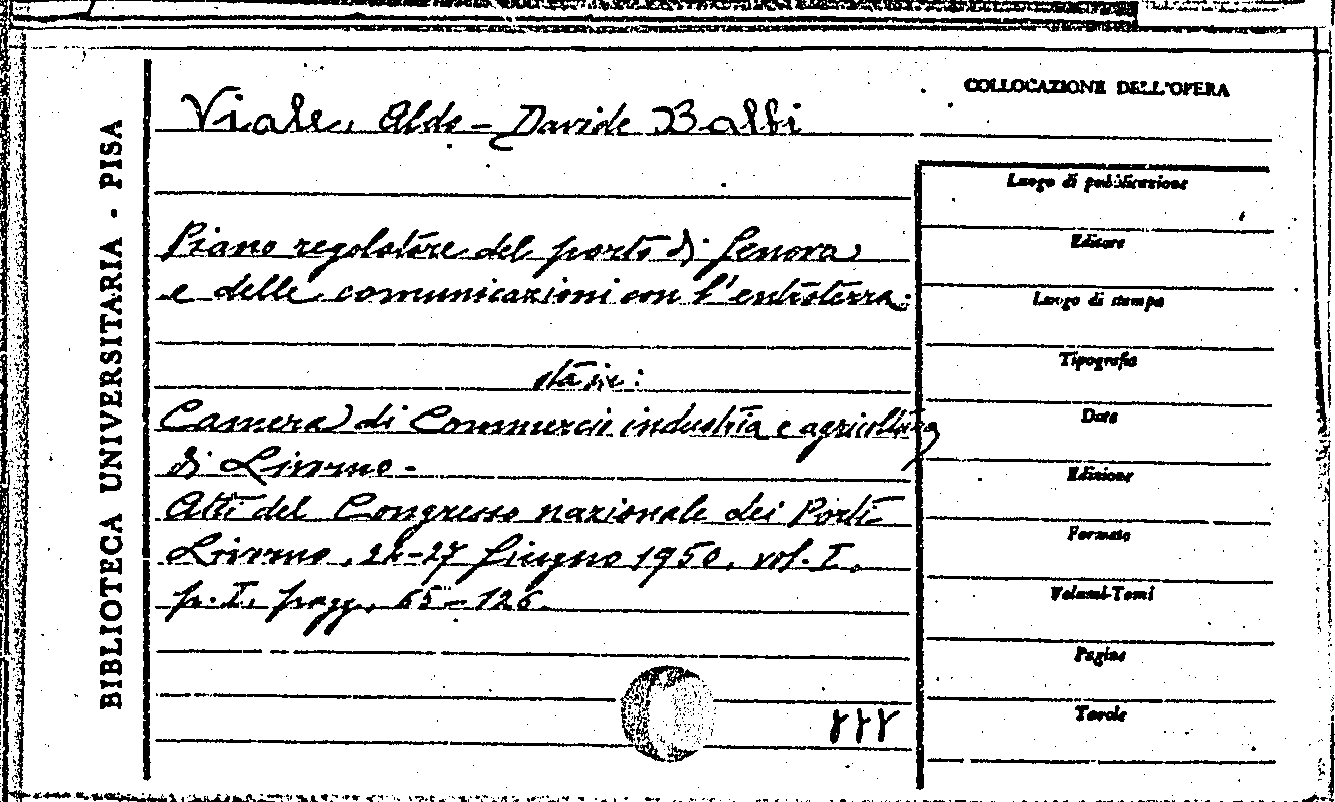 BIBLIOTECA UNIVERSITARIA - PISA
Viale, Aldo - Davide Balbi
Piano regolatore del porto di Genova
e delle comunicazioni con l'entroterra.
sta in:
Camera di Commercio industria e agricoltura
di Livorno -
Atti del Congresso nazionale dei Porti
Livorno, 24-27 Giugno 1950, vol. I,
p. I, pagg. 65-126.
COLLOCAZIONE DELL'OPERA
Luogo di pubblicazione
Editore
Luogo di stampa
Tipografia
Data
Edizione
Formato
Volumi-Tomi
Pagine
Tavole